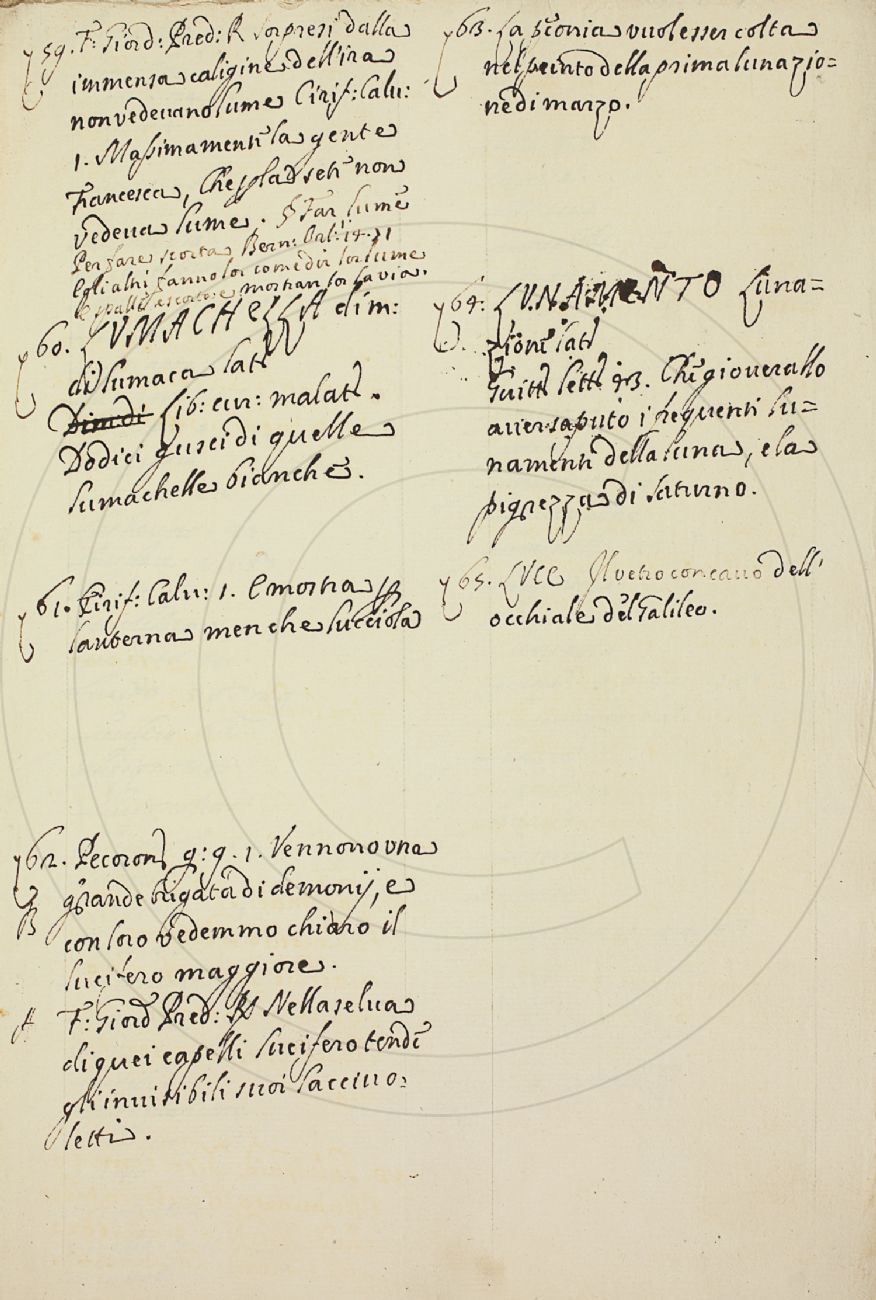 59. F: Giord: Pred: R Sorpresi dalla
immensa caligine dell'ira
non vedevano lume Cirif: Calv:
1. Massimamente la gente
Francesca, che
vedeva lume. § Far lume
Per fare scorta Bern: Orl:
E gli altri fanno lor
mostran lor la via.
60. LUMACHELLA dim:
di lumaca lat:
Dim: di Lib: cur: malatt.
Dodici gusci di quelle
lumachelle bianche.
61. Cirif: Calv: 1. E mostra
lanterna men che lucciola
62. Pecoron: g: 9. 1. Vennono una
B grande brigata di demonij, e
con loro vedemmo chiaro il
lucifero maggiore.
A F: Giord Pred: R Nella selva
di quei capelli lucifero tende
gl'invisibili suoi lacciuo=
letti.
63. La peonia vuol esser colta
nel punto della prima lunazio=
ne di marzo.
64. LUNAMENTO Luna=
zione lat:
Guitt: lett: 43. Che gioverallo
aver saputo i frequenti lu=
namenti della luna, e la
pigrezza di Saturno.
65. LUCE Il vetro concavo dell'
occhiale del Galileo.